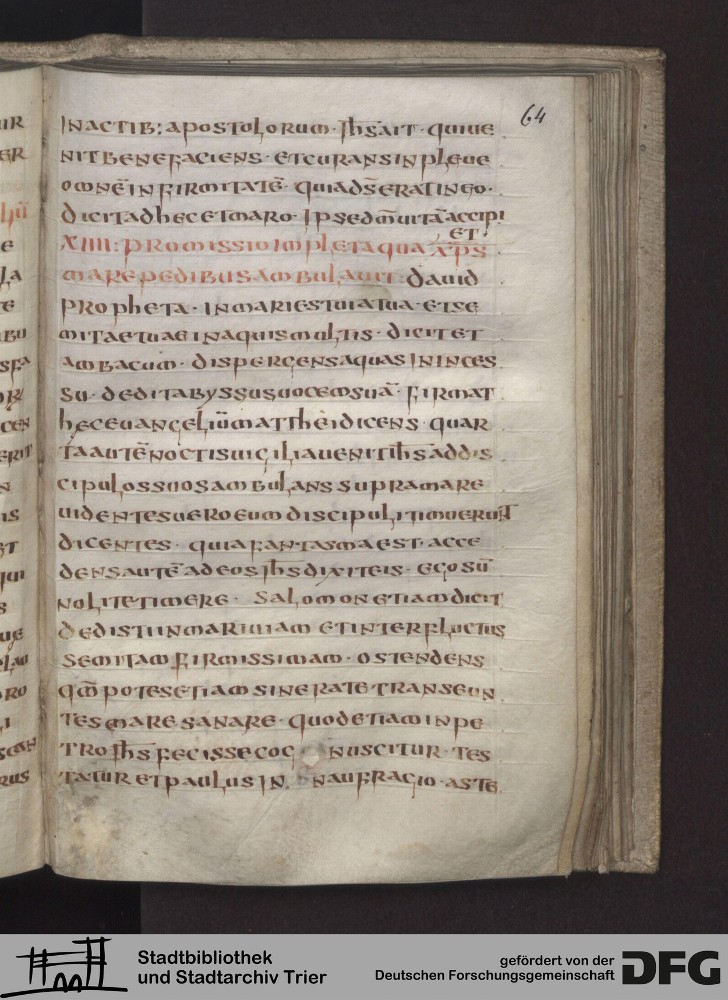 64
INACTIB; apostolorum· ih̅s̅ait· quiue
nitbenefaciens· etcuransinpleue
omnē infirmitatē· quiad̅s̅eratineo·
dicitadhec etmaro· ipsedm̅uitāaccipi
et·
XIIII: promissioimpletaqua xp̅s̅
marepedibusambulauit: dauid
propheta· inmariestuiatua· etse
mitaetuaeinaquismultis· dicitet
ambacum· dispergensaquas ininces
su· deditabyssusuocemsuā· firmat
heceuangeliūmattheidicens· quar
taautēnoctisuigiliauenitih̅s̅addis
cipulossuosambulanssupramare
uidentesueroeumdiscipulitimuerunt
dicentes· quiafantasmaest· acce
densautēadeosih̅s̅dixiteis· egosū
nolitetimere· salomonetiamdicit
dedistiinmariuiam etinterfluctus
semitamfirmissimam· ostendens
qm̅potesetiamsineratetranseun
tesmaresanare· quodetiaminpe
troih̅s̅fecissecog nuscitur· tes
taturetpaulusin naufragio· aste
Stadtbibliothek
und Stadtarchiv Trier
gefördert von der
Deutschen Forschungsgemeinschaft
DFG